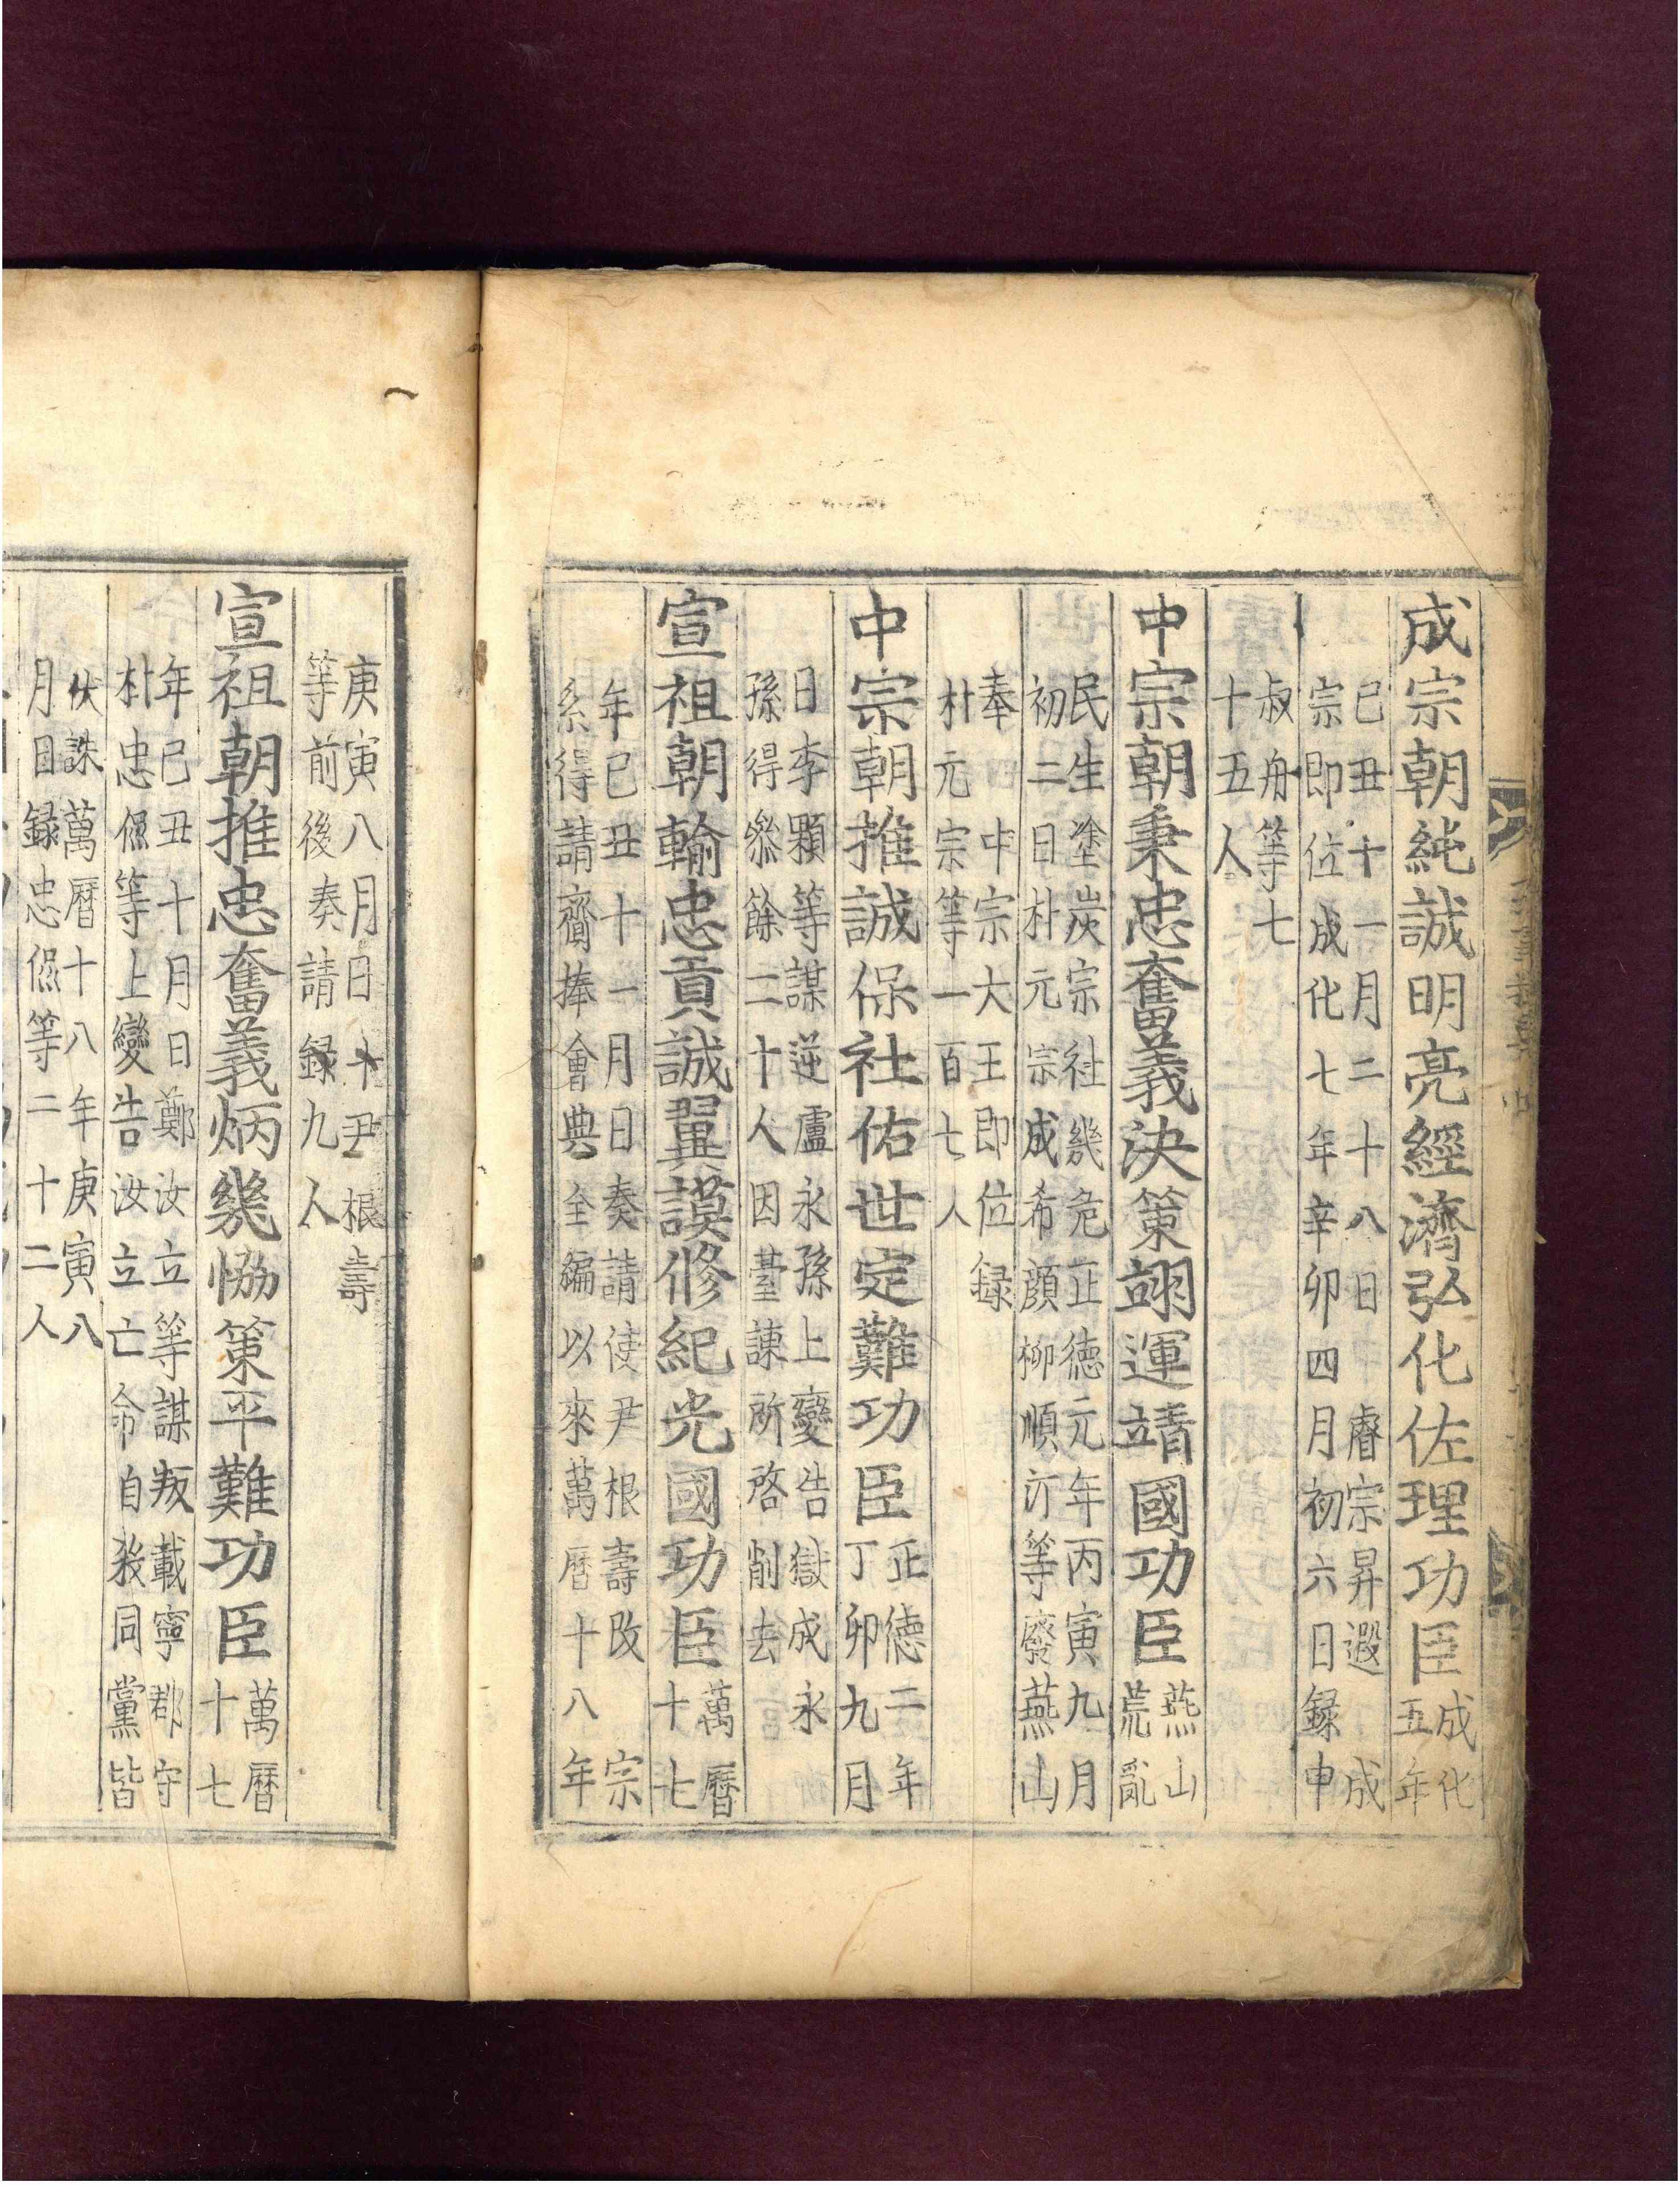 成宗朝純誠明亮經濟弘化佐理功臣成化
五年
己丑十一月二十八日睿宗昇遐成
宗即位成化七年辛卯四月初六日録申
叔舟等七
十五人
中宗朝秉忠奮義決策翊運靖國功臣燕山
荒亂
民生塗炭宗社幾危正德元年丙寅九月
初二日朴元宗成希顔柳順汀等廢燕山
奉中宗大王即位録
朴元宗等一百七人
中宗朝推誠保社佑世定難功臣正德二年
丁卯九月
日李顆等謀逆盧永孫上變告獄成永
孫得叅餘二十人因臺諫所啓削去
宣祖朝輸忠貢誠翼謨修紀光國功臣萬曆
十七
年己丑十一月日奏請使尹根壽改宗
系得請齎捧會典全編以來萬曆十八年
庚寅八月日十尹根壽
等前後奏請録九人
宣祖朝推忠奮義炳幾恊策平難功臣萬曆
十七
年己丑十月日鄭汝立等謀叛載寧郡守
朴忠侃等上變告汝立亡命自殺同黨皆
伏誅萬曆十八年庚寅八
月日録忠侃等二十二人